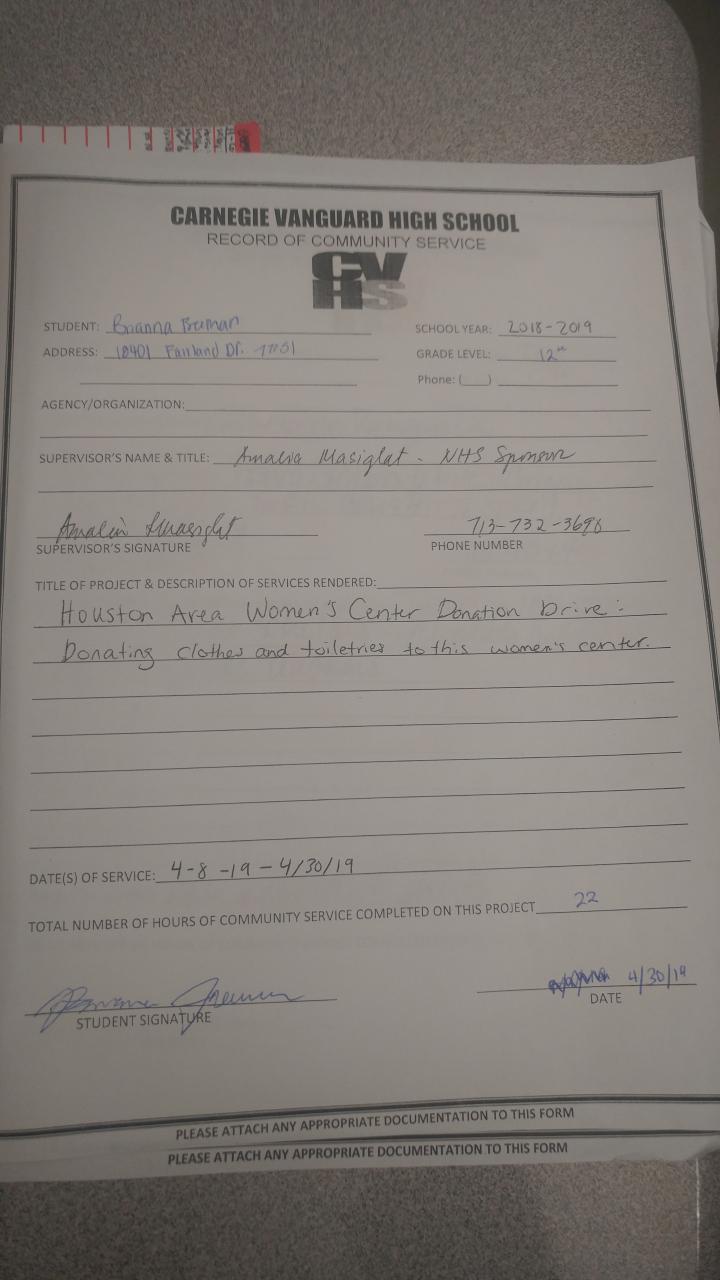 CARNEGIE VANGUARD HIGH SCHOOL
RECORD OF COMMUNITY SERVICE
CV
HS
STUDENT: Brianna
SCHOOL YEAR: 2018-2019
ADDRESS: 10401 Fairland Dr.
GRADE LEVEL: 12th
Phone: (___)
AGENCY/ORGANIZATION:
SUPERVISOR'S NAME & TITLE: Amalia Masiglat - NHS Sponsor
SUPERVISOR'S SIGNATURE
713-732-3690
PHONE NUMBER
TITLE OF PROJECT & DESCRIPTION OF SERVICES RENDERED:
Houston Area Women's Center Donation Drive:
Donating clothes and toiletries to this women's center.
DATE(S) OF SERVICE: 4-8-19 - 4/30/19
TOTAL NUMBER OF HOURS OF COMMUNITY SERVICE COMPLETED ON THIS PROJECT 22
4/30/19
STUDENT SIGNATURE
DATE
PLEASE ATTACH ANY APPROPRIATE DOCUMENTATION TO THIS FORM
PLEASE ATTACH ANY APPROPRIATE DOCUMENTATION TO THIS FORM